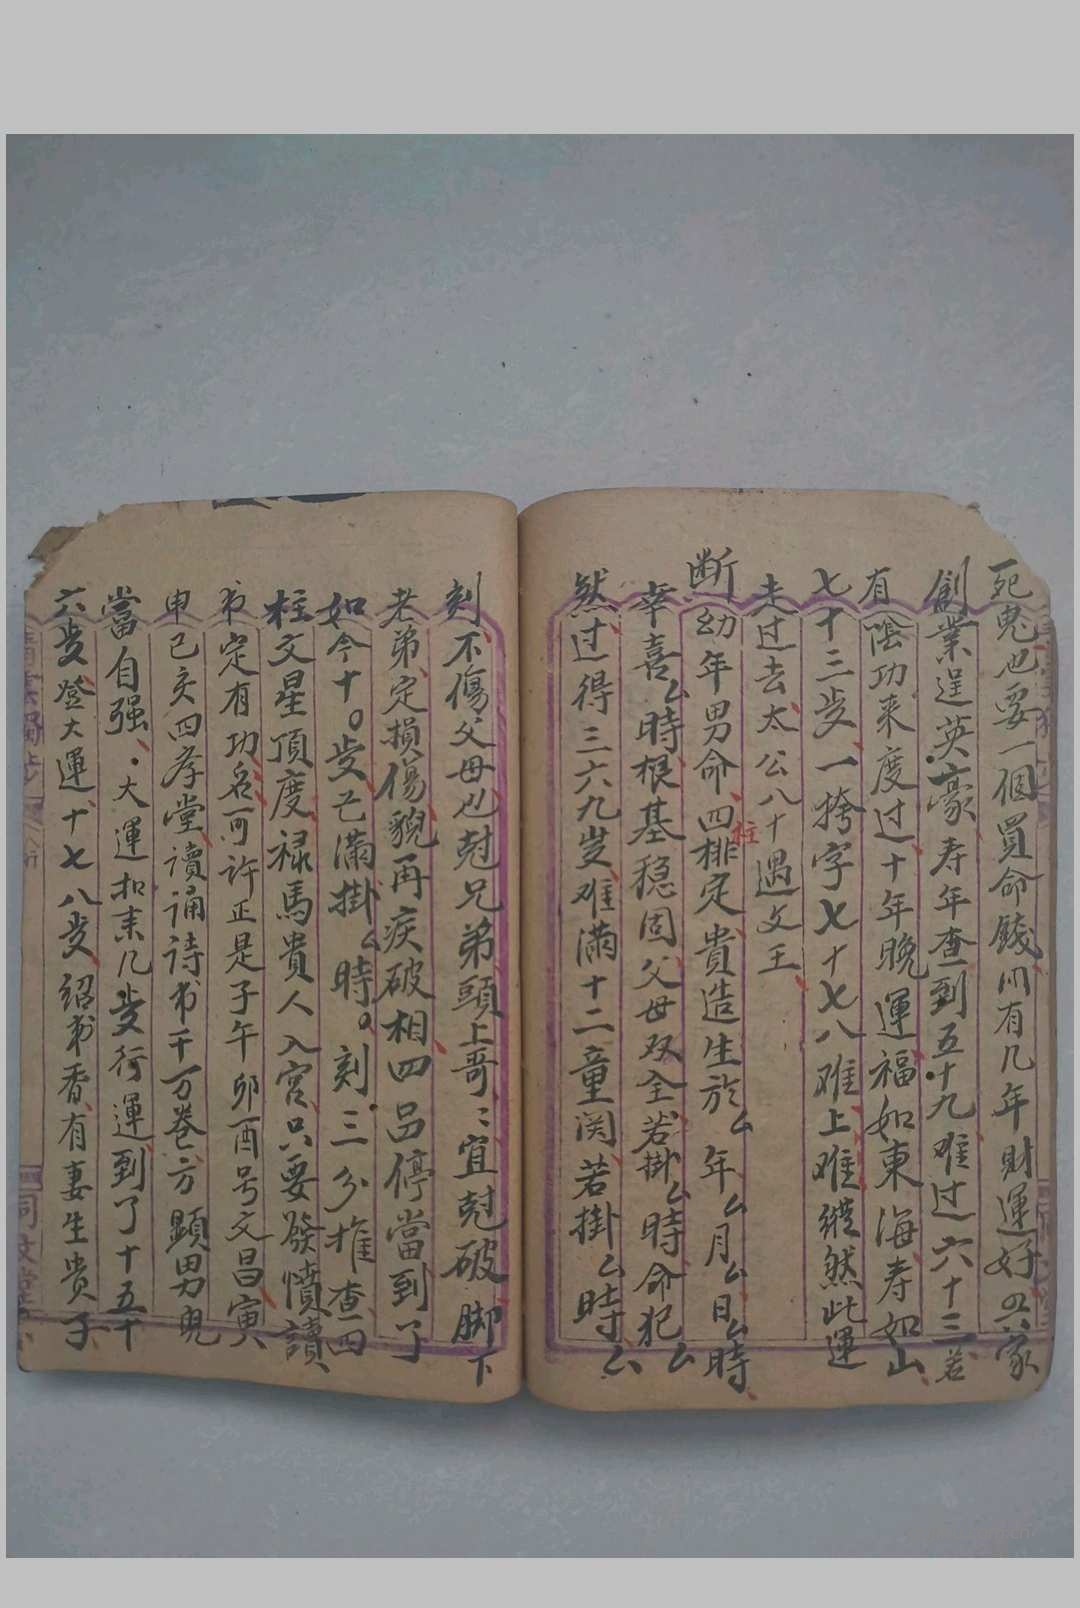 死鬼也要一個買命錢川有几年財運好興家
創業逞英豪寿年查到五十九难过六十三若
有陰功来度过十年晚運福如東海寿如山
七十三步一挎字七十七八难上难縱然此運
走过去太公八十遇文王
断幼年男命四柱排定貴造生於厶年厶月厶日厶時
幸喜厶時根基稳固父母双全若掛厶時命犯厶
然过得三六九岁难满十二童関若掛厶時厶
刻不傷父母也尅兄弟頭上哥〻宜尅破脚下
老弟定損傷貌再疾破相四吕停當到了
如今十○岁已滿掛厶時○刻三分推查四
柱文星頂度禄馬貴人入宮只要發憤讀
书定有功名可许正是子午卯酉号文昌寅
申己亥四孝堂讀诵诗书千万卷方顕男兒
當自强大運扣来几岁行運到了十五十
六岁登大運十七八岁绍书香有妻生贵子
同文堂